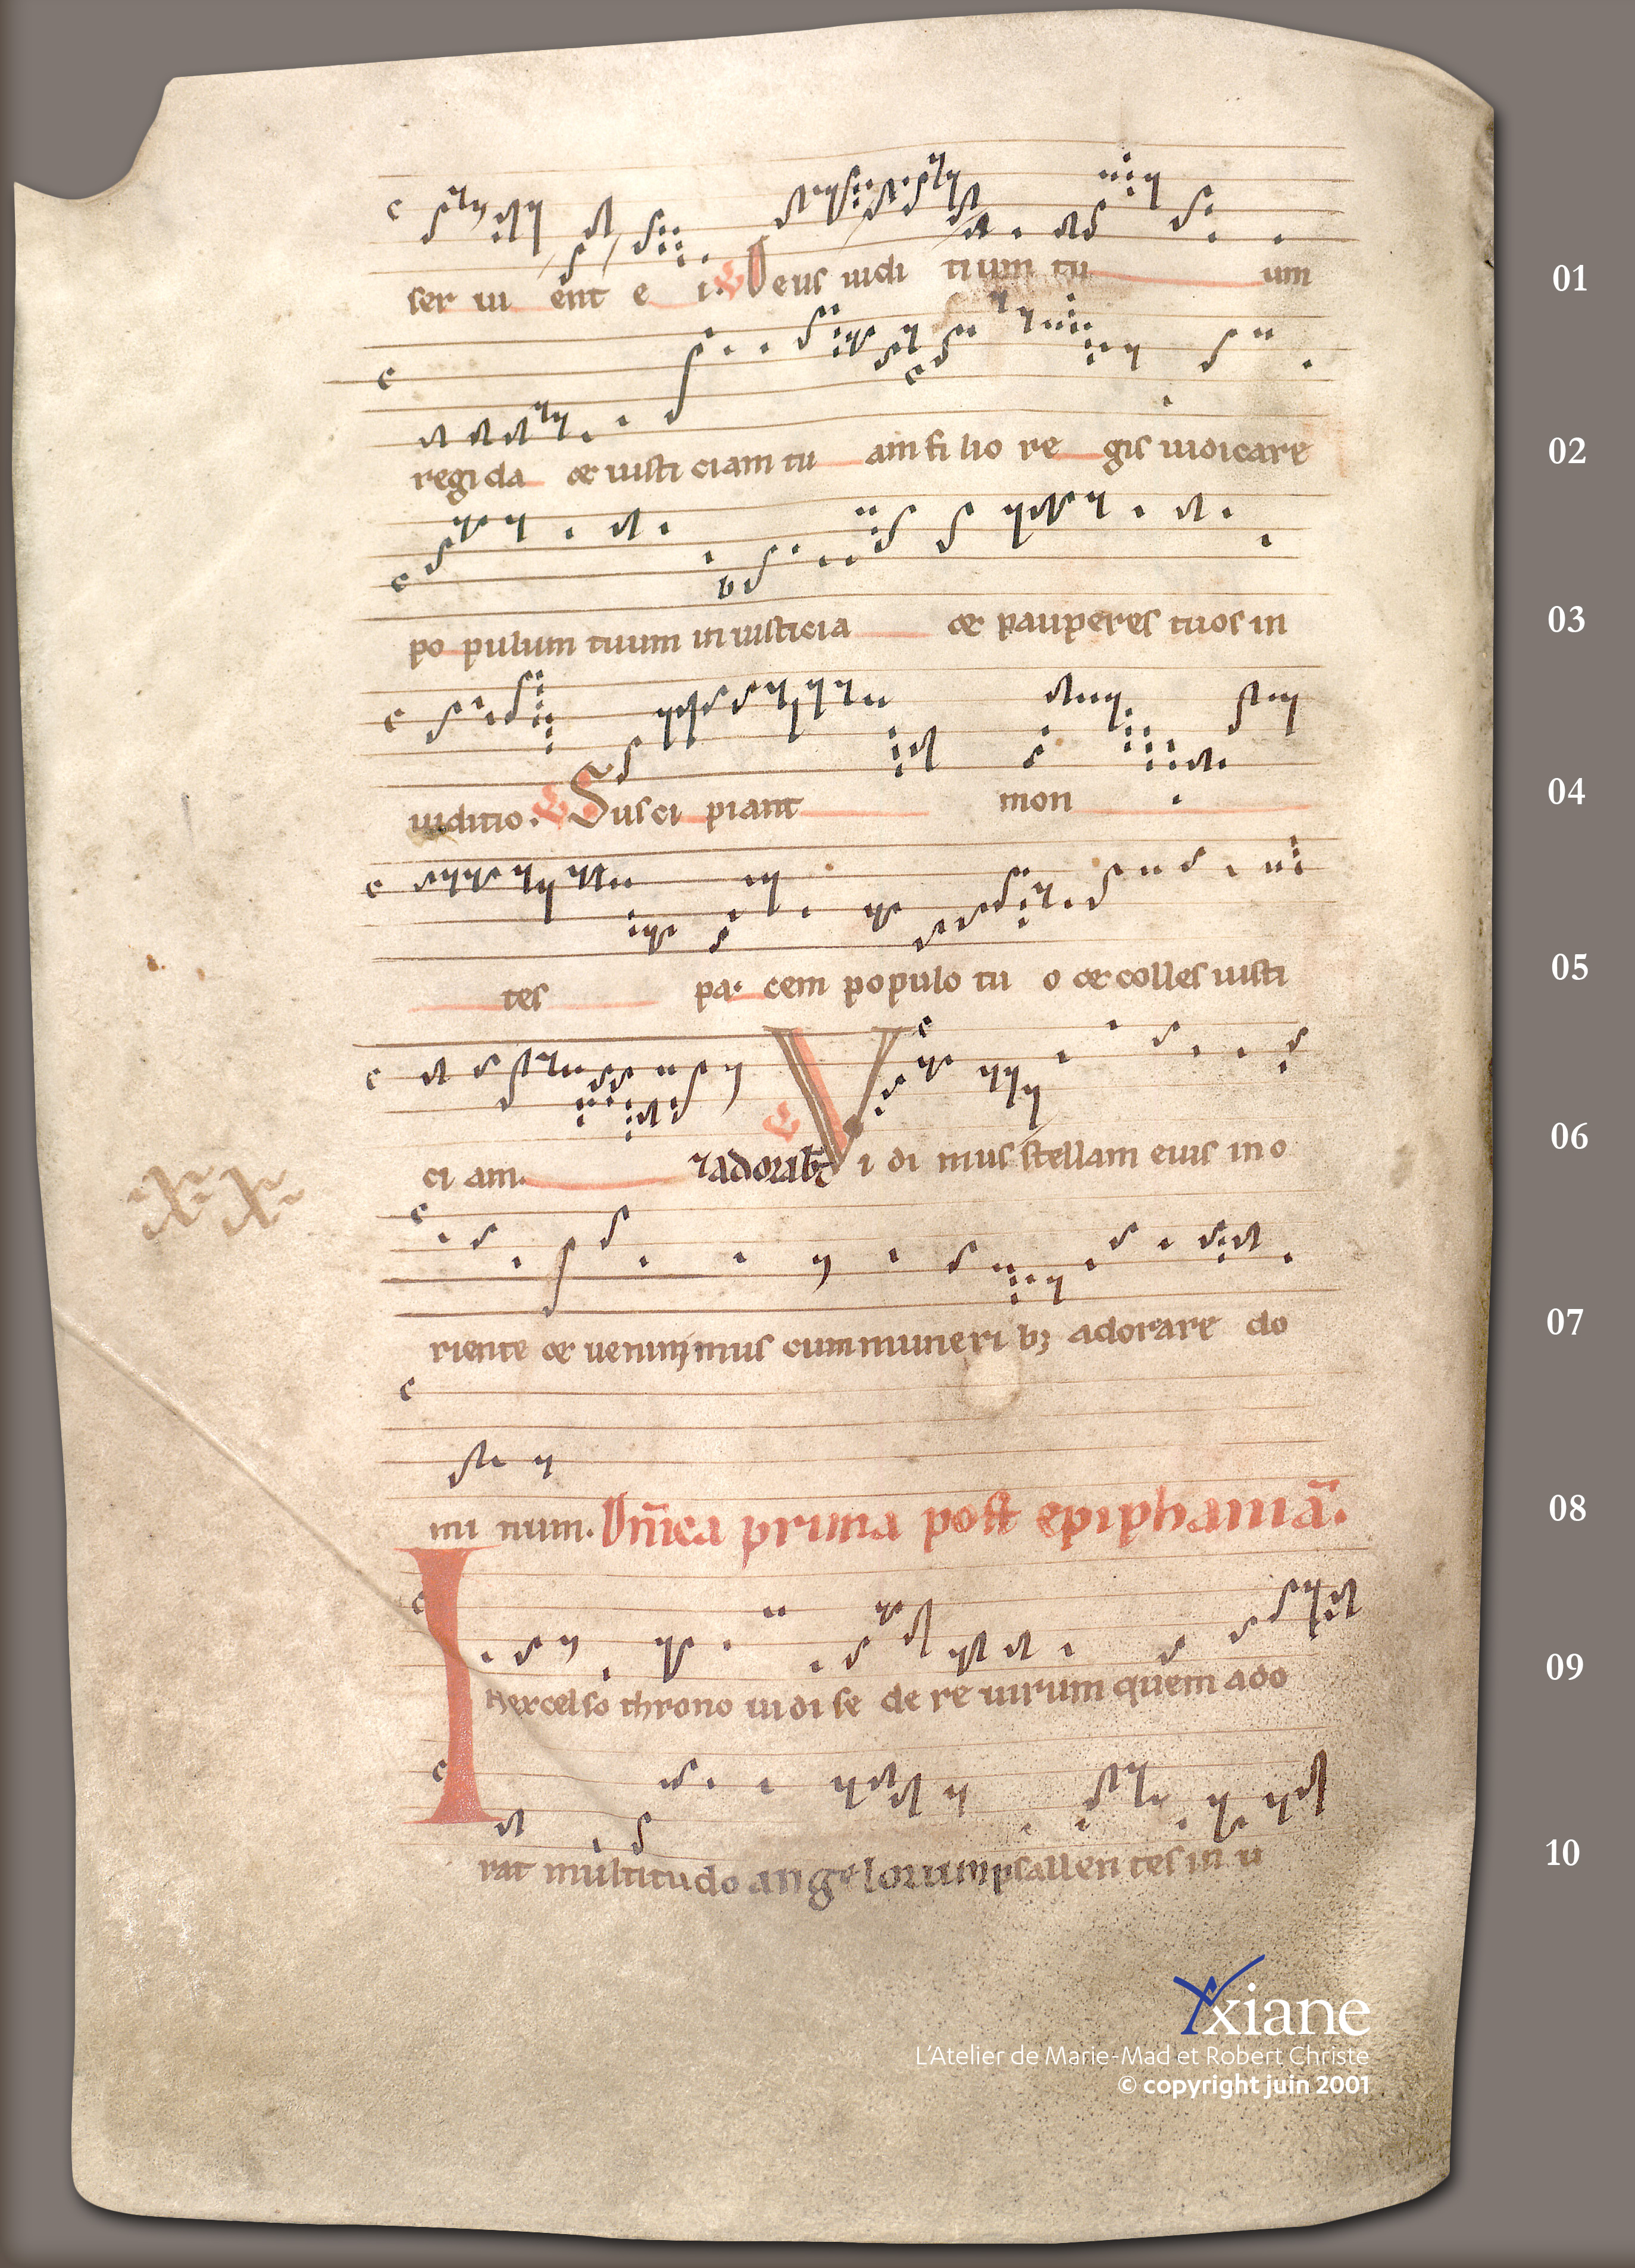 ser ui ent e i. V Deus iudi tium tu um 01
regi da et iusti ciam tu am fi lio re gis iudicare 02
po pulum tuum in iusticia et pauperes tuos in 03
iuditio. V Susci piant mon 04
tes pa. cem populo tu o et colles iusti 05
ci am. ⁊ adorabt V Vi di mus stellam eius in o 06
riente et uenimus cum muneri bꝫ adorare do 07
mi num. Dn̄ica prima post epiphaniā. 08
In excelso throno uidi se de re uirum quem ado 09
rat multitudo angelorum psallen tes in u 10
xx
Yxiane
L'Atelier de Marie-Mad et Robert Christe
© copyright juin 2001